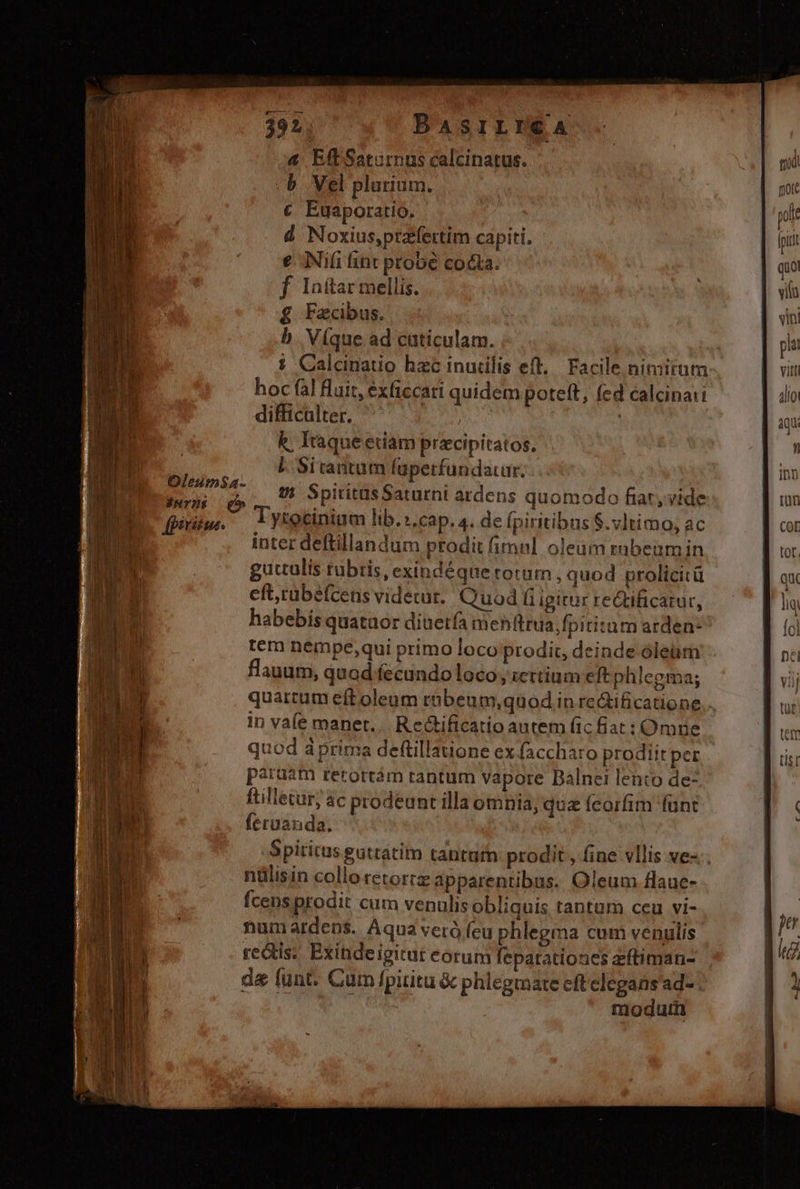 392 BASILICA
a Eſt Saturnus calcinatus.
b Vel plurium.
c Euaporatio.
d Noxius, præſertim capiti.
e Niſi ſint probè cocta.
f Inſtar mellis.
g Fæcibus.
h Vſque ad cuticulam.
i Calcinatio hæc inutilis eſt. Facile nimirum
hoc ſal fluit, exſiccari quidem poteſt, ſed calcinari
difficulter.
k Itaque etiam præcipitatos.
l Si tantum ſuperfundatur.
Oleum Sa-
turni &
ſpiritus.
m Spiritus Saturni ardens quomodo fiat, vide
Tyrocinium lib. 2. cap. 4. de ſpiritibus §. vltimo, ac
inter deſtillandum prodit ſimul oleum rubeum in
guttulis rubris, exindéque totum, quod prolicitũ
eſt, rubeſcens videtur. Quod ſi igitur rectificatur,
habebis quatuor diuerſa menſtrua, ſpiritum arden-
tem nempe, qui primo loco prodit, deinde oleum
flauum, quod ſecundo loco, tertium eſt phlegma;
quartum eſt oleum rubeum, quod in rectificatione
in vaſe manet. Rectificatio autem ſic fiat: Omne
quod à prima deſtillatione ex ſaccharo prodiit per
paruam retortam tantum vapore Balnei lento de-
ſtilletur, ac prodeunt illa omnia, quæ ſeorſim ſunt
ſeruanda.
Spiritus guttatim tantum prodit, ſine vllis ve-
nulis in collo retortæ apparentibus. Oleum flaue-
ſcens prodit cum venulis obliquis tantum ceu vi-
num ardens. Aqua verò ſeu phlegma cum venulis
rectis. Exinde igitur eorum ſeparationes æſtiman-
dæ ſunt. Cum ſpiritu & phlegmate eſt elegans ad-
modum